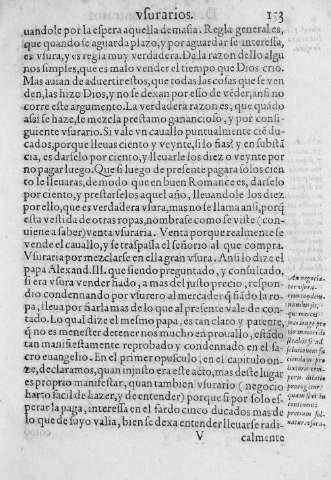 vsurarios. 153
uandole por la espera aquella demasia. Regla general es,
que quando se aguarda plazo, y por aguardar se interessa,
es vsura, y es regla muy verdadera. Da la razon dello algu
nos simples, que es malo vender el tiempo que Dios crio.
Mas auian de aduertir estos, que todas las cosas que se ven
den, las hizo Dios, y no se dexan por esso de vẽder, ansi no
corre este argumento. La verdadera razon es, que quãdo
asi se haze, se mezcla prestamo ganancioso, y por consi-
guiente vsurario. Si vale vn cauallo puntualmente ciẽ du-
cados, porque lleuas ciento y veynte, si lo fias? y en substã
cia, es darselo por ciento, y lleuarle los diez o veynte por
no pagar luego. Que si luego de presente pagara solos cien
to le lleuaras, de modo que en buen Romance es, darselo
por ciento, y prestarselos aquel año, lleuandole los diez
por ello, que es verdadera vsura, mas no se llama ansi, porq̃
esta vestida de otras ropas, nombrase como se viste (con-
uiene a saber) venta vsuraria. Venta porque realmente se
vende el cauallo, y se traspassa el señorio al que compra.
Vsuraria por mezclarse en ella gran vsura. Ansi lo dize el
papa Alexand. III. que siendo preguntado, y consultado,
si era vsura vender fiado, a mas del justo precio, respon-
dio condennando por vsurero al mercader q̃ fiãdo la ro-
pa, lleua por fiarla mas de lo que al presente vale de con-
tado. Lo qual dize el mesmo papa, es tan claro y patente,
q̃ no es menester detenernos mucho en prouallo, estãdo
tan manifiestamente reprobado y condennado en el sa-
cro euangelio. En el primer opusculo, en el capitulo on-
ze, declaramos, quan injusto era este acto, mas deste lugar
es proprio manifestar, quan tambien vsurario (negocio
harto facil de hazer, y de entender) porque si por solo es-
perar la paga, interessa en el fardo cinco ducados mas de
lo que de suyo valia, bien se dexa entender lleuarse radi-
V calmente
An negocia-